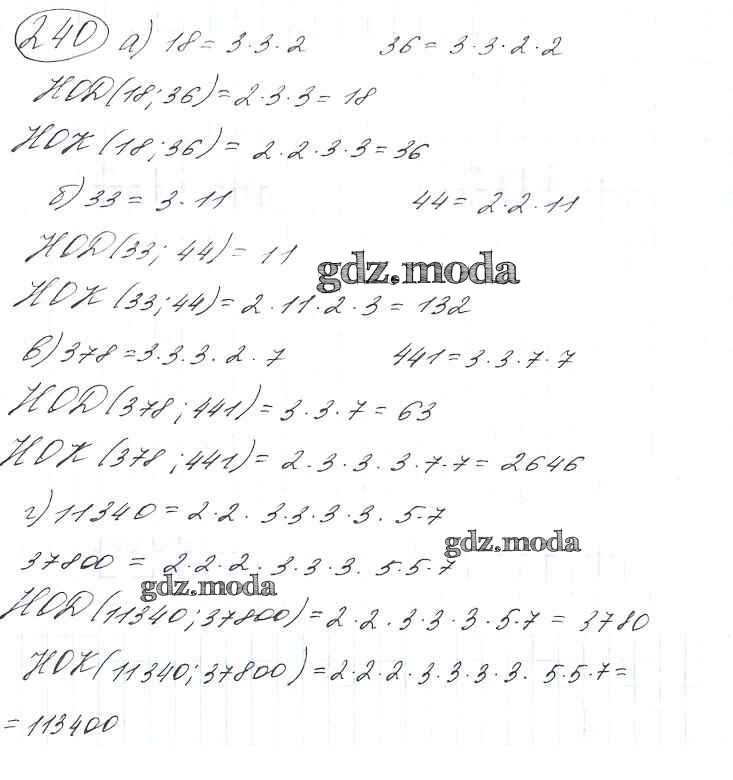 240 а) 18 = 3·3·2 36 = 3·3·2·2
НОД(18;36) = 2·3·3 = 18
НОК(18;36) = 2·2·3·3 = 36
б) 33 = 3·11 44 = 2·2·11
НОД(33; 44) = 11
gdz.moda
НОК(33;44) = 2·11·2·3 = 132
в) 378 = 3·3·3·2·7 441 = 3·3·7·7
НОД(378;441) = 3·3·7 = 63
НОК(378;441) = 2·3·3·3·7·7 = 2646
г) 11340 = 2·2·3·3·3·3·5·7
gdz.moda
37800 = 2·2·2·3·3·3·5·5·7
gdz.moda
НОД(11340;37800) = 2·2·3·3·3·5·7 = 3780
НОК(11340;37800) = 2·2·2·3·3·3·3·5·5·7 =
= 113400